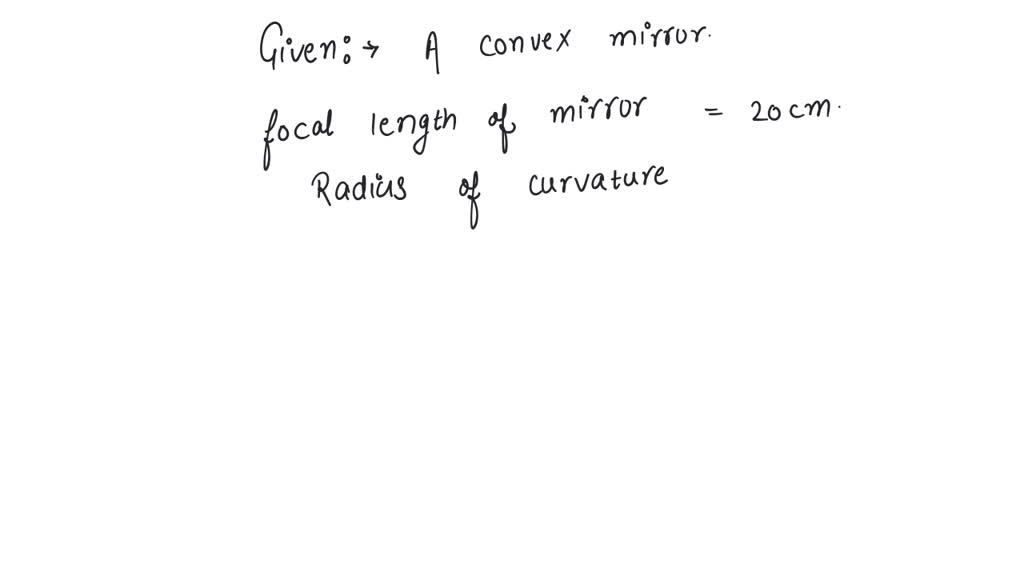 Given:→ A convex mirror.
focal length of mirror = 20 cm.
Radius of curvature